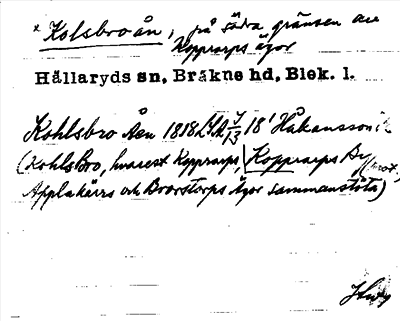 * Kolsbroån, på södra gränsen av
Kopparps ägor
Hällaryds sn, Bräkne hd, Blek. l.
Kohlsbro Åen 1818 7/13 18' Håkansson
(Kohlsbro, hvarest Kopparps, Kopparps By
Applekärrs och Brorstorps Ägor sammanstöta)